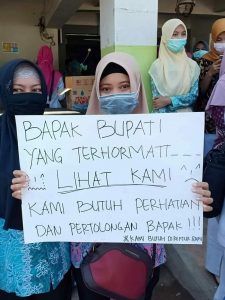 BAPAK BUPATI
YANG TERHORMATT----
LIHAT KAMI
KAMI BUTUH PERHATIAN
DAN PERTOLONGAN BAPAK !!!
KAMI BUTUH